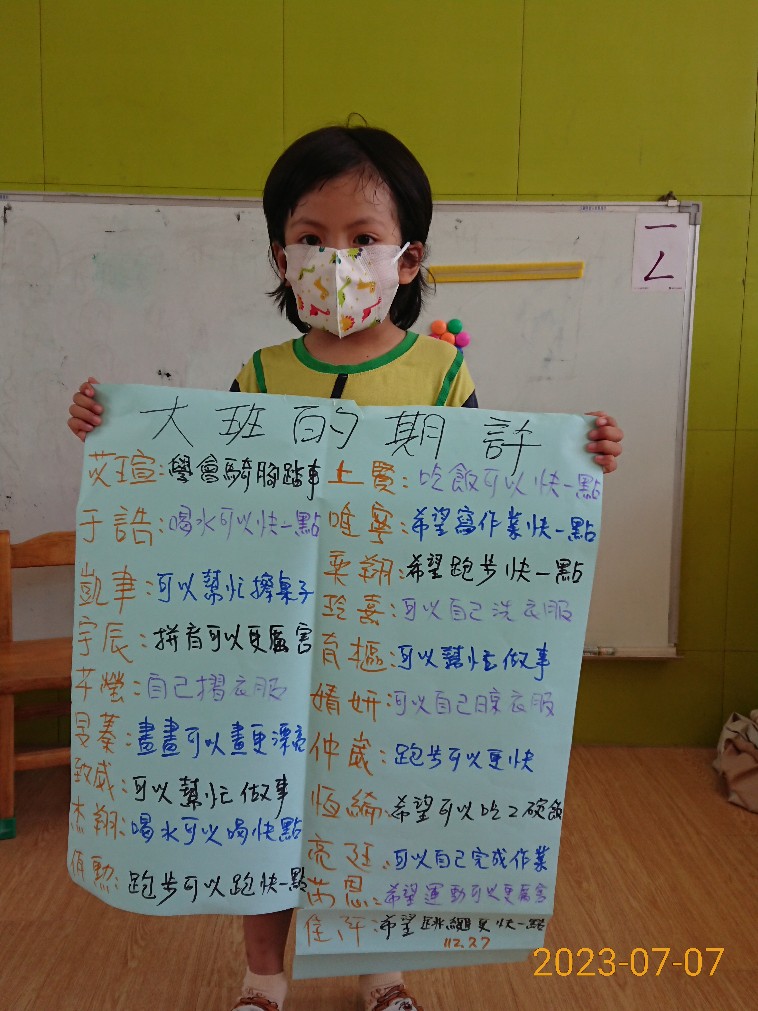 ㄧ
ㄥ
大班的期許
苡瑄:學會騎腳踏車
于誥:喝水可以快一點
凱聿:可以幫忙擦桌子
宇辰:拼音可以更厲害
芊瑩:自己摺衣服
旻蓁:畫畫可以畫更漂亮
致威:可以幫忙做事
杰翔:喝水可以喝快點
勲:跑步可以跑快一點
上賢:吃飯可以快一點
唯寧:希望寫作業快一點
翔:希望跑步快一點
玹熹:可以自己洗衣服
育樞:可以幫忙做事
婧妍:可以自己晾衣服
仲崴:跑步可以更快
恆綺:希望可以吃2碗飯
亮廷:可以自己完成作業
芮恩:希望運動可以更厲害
希望跳繩更快一點
112.7.7
2023-07-07